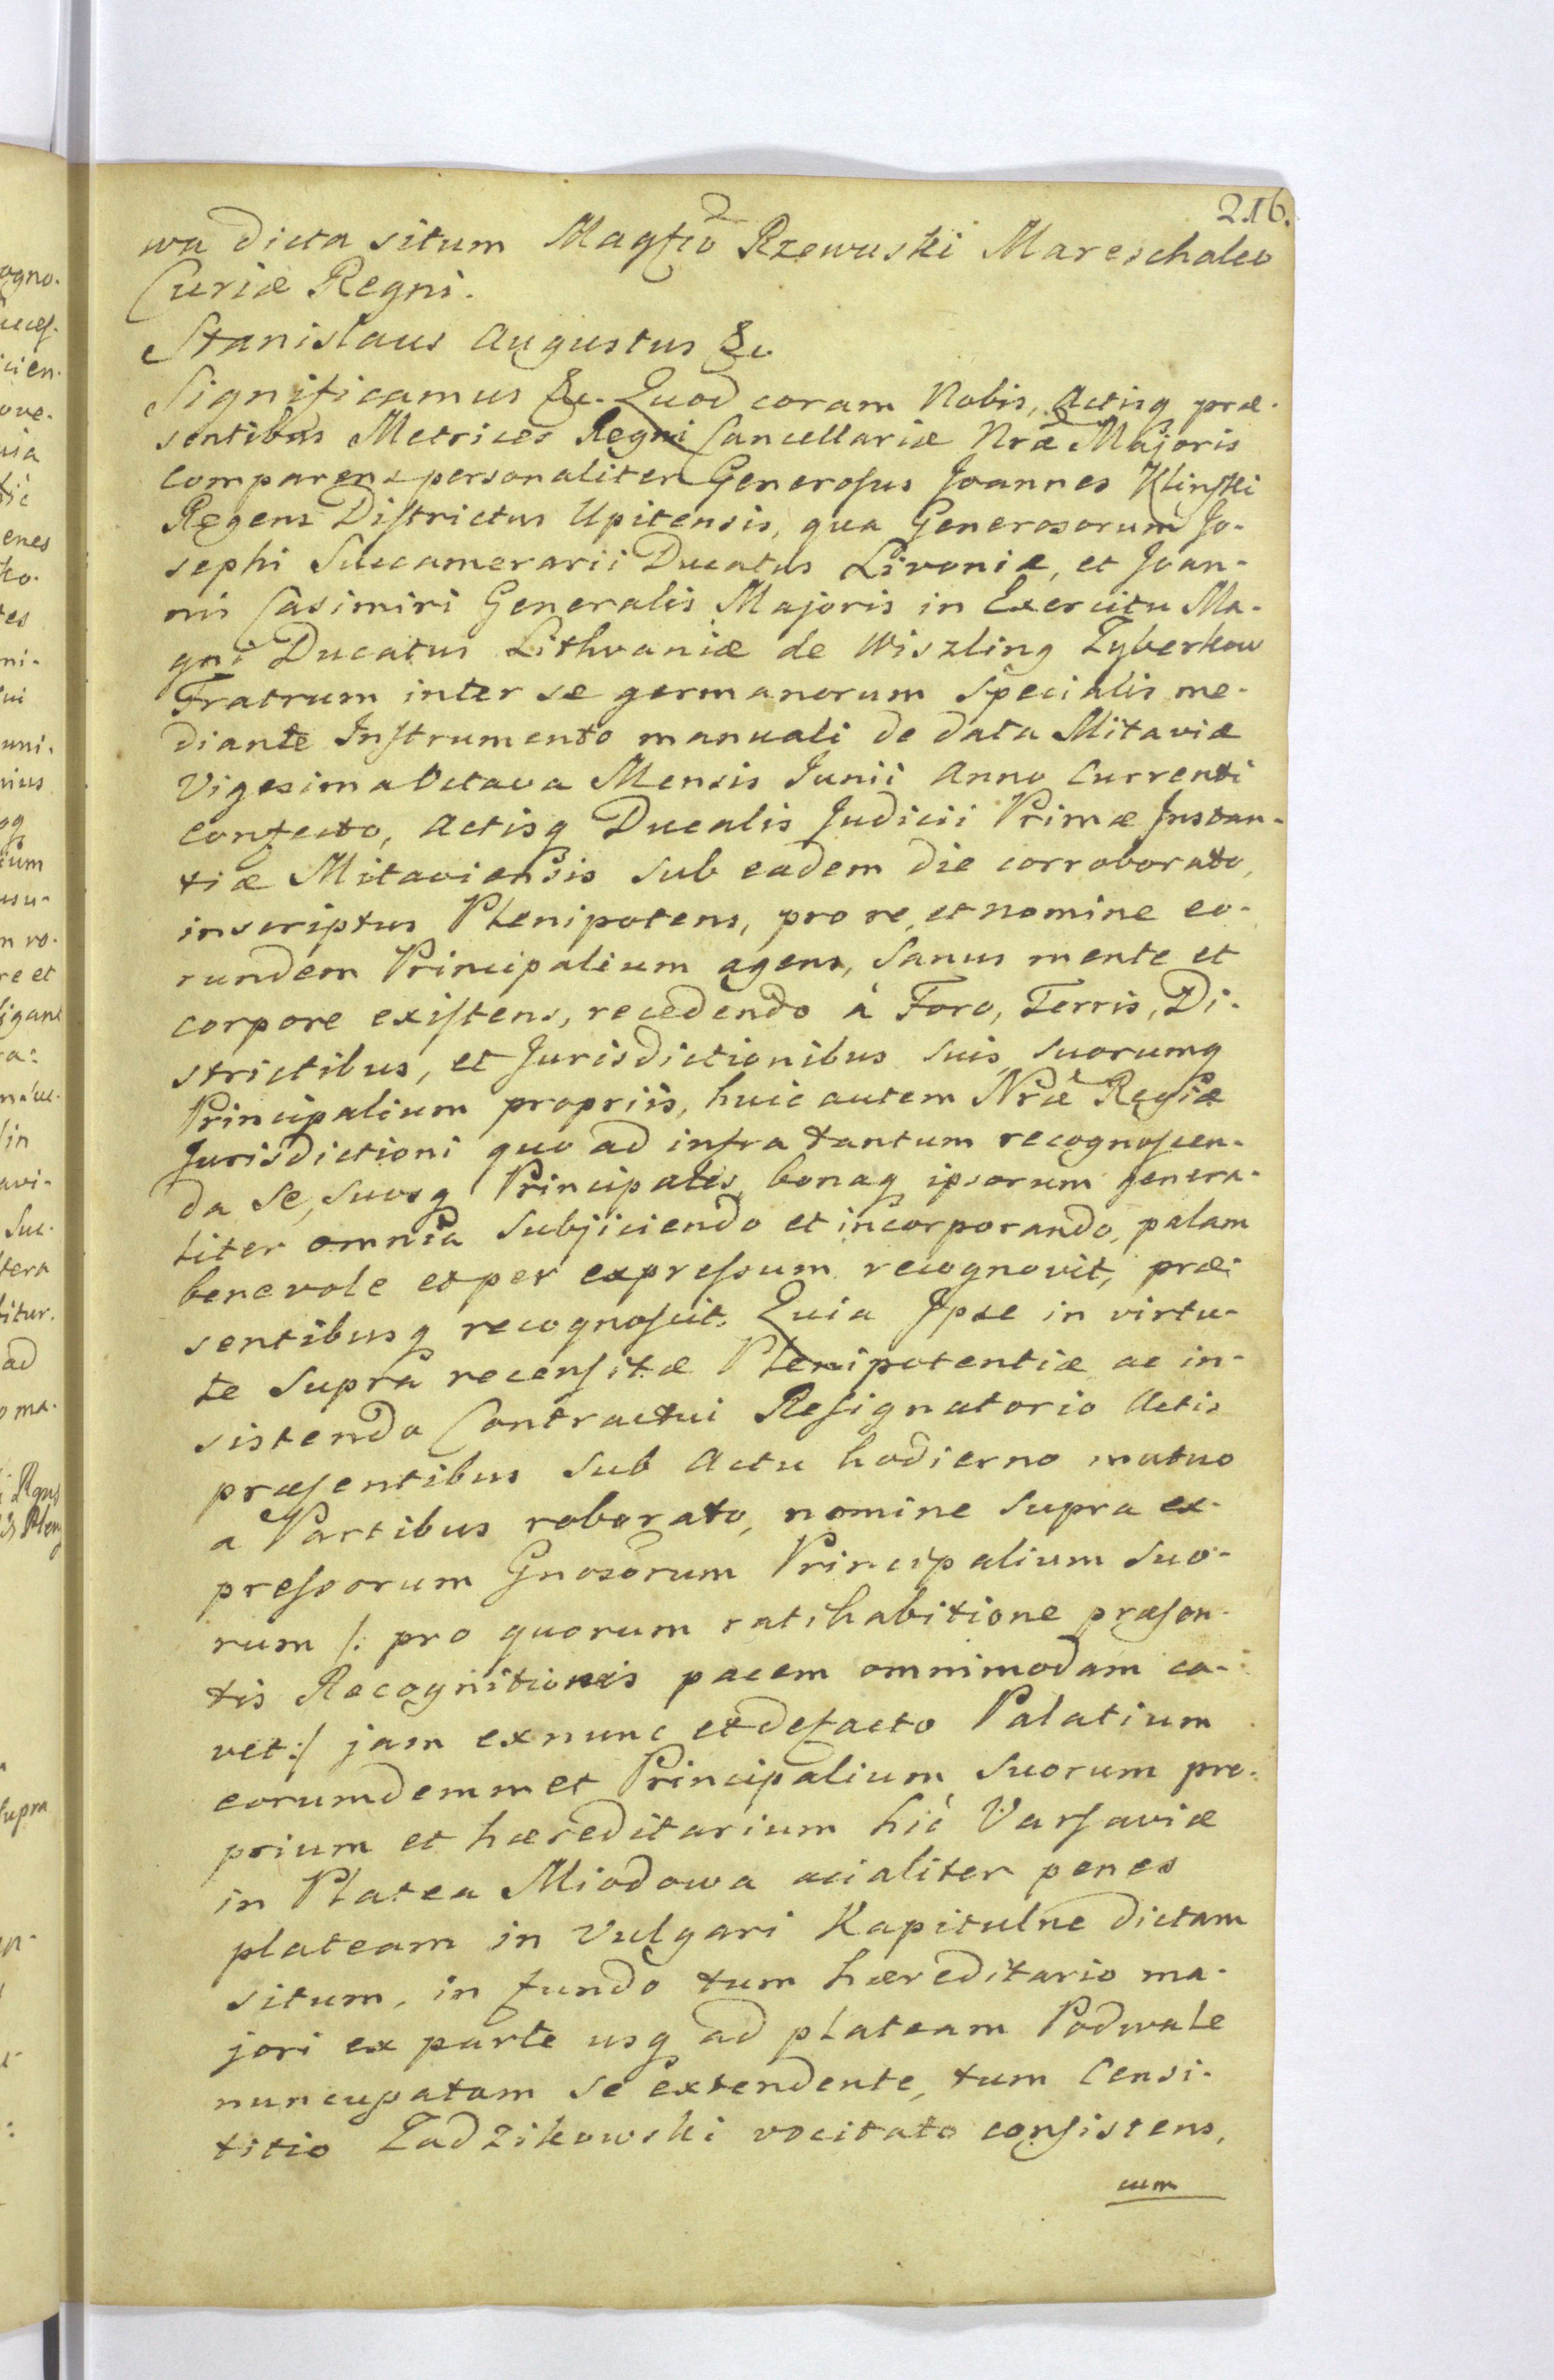 216.
wa dicta situm Magfco Rzewuski Mareschalco
Curiæ Regni.
Stanislaus Augustus &c.
Significamus &c. Quod coram Nobis, Actisq præ-
sentibus Metrices Regni Cancellariæ Nræ Majoris
comparens personaliter Generosus Joannes Klinski
Regens Districtus Upitensis, qua Generosorum Jo-
sephi Succamerarii Ducatus Livoniæ, et Joan-
nis Casimiri Generalis Majoris in Exercitu Ma-
gni Ducatus Lithvaniæ de Wiszling Zyberkow
Fratrum inter se germanorum Specialis me-
diante Instrumento manuali de data Mitaviæ
Vigesima Octava Mensis Junii Anno Currenti
confecto, Actisq Ducalis Judicii Primæ Instan-
tiæ Mitaviensis sub eadem die corroborato,
inscriptus Plenipotens, pro re, et nomine eo-
rundem Principalium agens, Sanus mente et
corpore existens, recedendo à Foro, Terris, Di-
strictibus, et Jurisdictionibus suis, suorumq
Principalium propriis, huic autem Nræ Regiæ
Jurisdictioni quo ad infra tantum recognoscen-
da se, suosq Principales, bonaq ipsorum genera-
liter omnia subjiciendo et incorporando, palam
benevole et per expressum recognovit, præ-
sentibusq recognoscit. Quia Ipse in virtu-
te supra recensitæ Plenipotentiæ ac in-
sistendo Contractui Resignatorio Actis
præsentibus sub Actu hodierno mutuo
a Partibus roborato, nomine supra ex-
pressorum Gnosorum Principalium suo-
rum /: pro quorum ratihabitione præsen-
tis Recognitionis pacem omnimodam ca-
vet :/ jam ex nunc et de facto Palatium
eorumdemmet Principalium suorum pro-
prium et hæreditarium hic Varsaviæ
in Platea Miodowa acialiter penes
plateam in vulgari Kapitulne dictam
situm, in fundo tum hæreditario ma-
jori ex parte usq ad plateam Podwale
nuncupatam se extendente, tum Censi-
titio Zadzikowski vocitato consistens,
cum